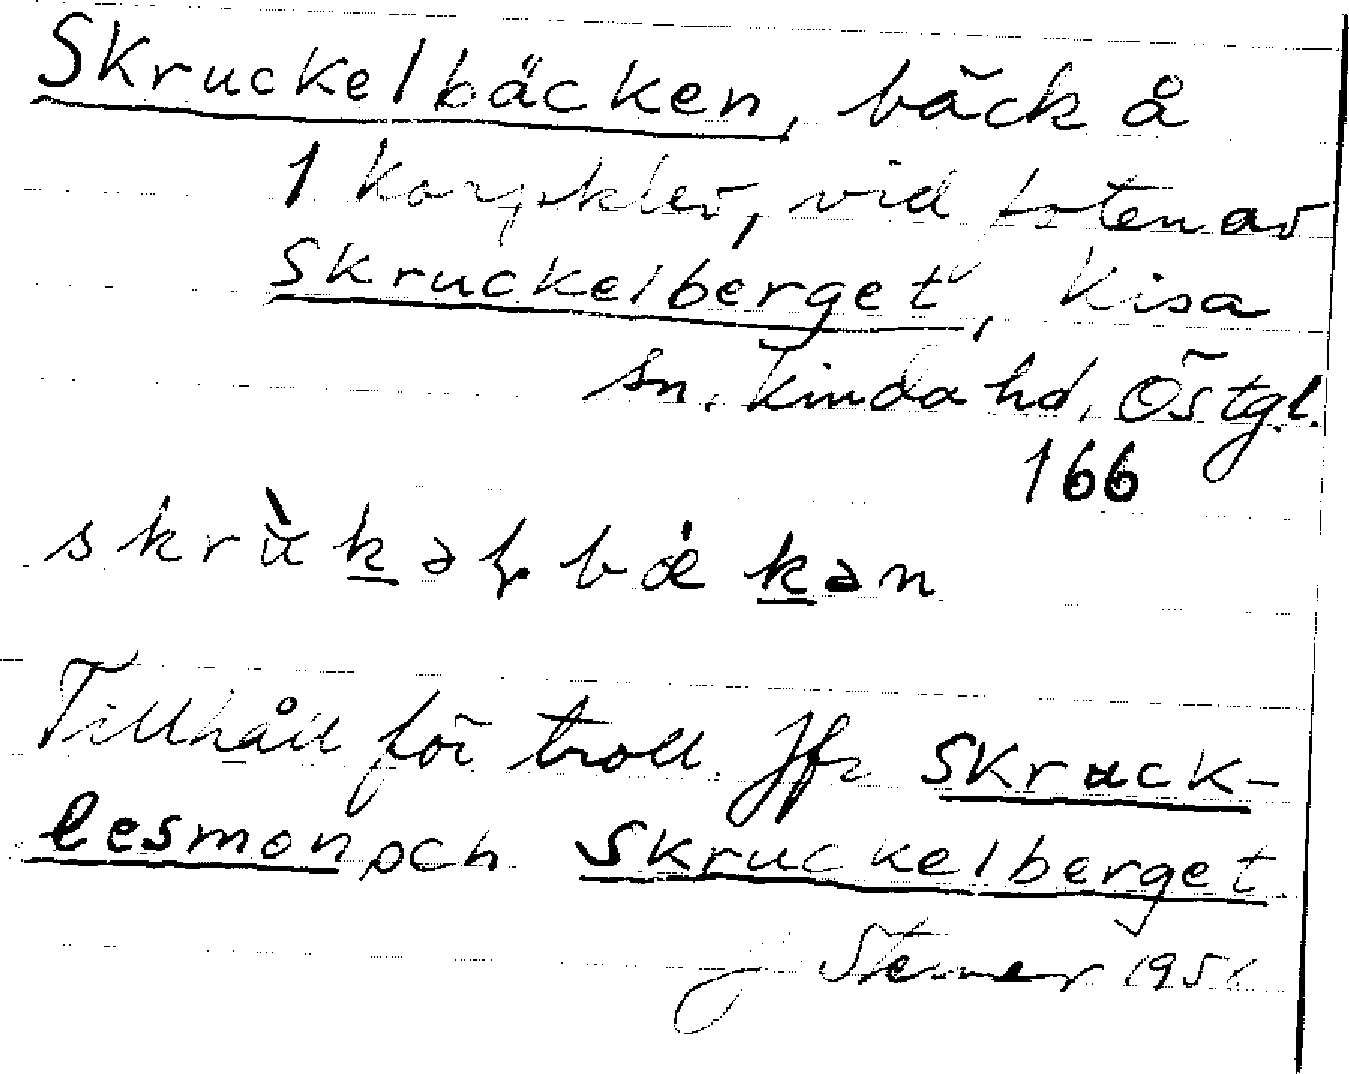 Skruckelbäcken, bäck å
1 Korpklev, vid foten av
Skruckelberget, Kisa
sn. Kinda hd. Östgl.
166
bǽkən
Tillhåll för troll. Jfr Skruck-
lesmon och Skruckelberget
J